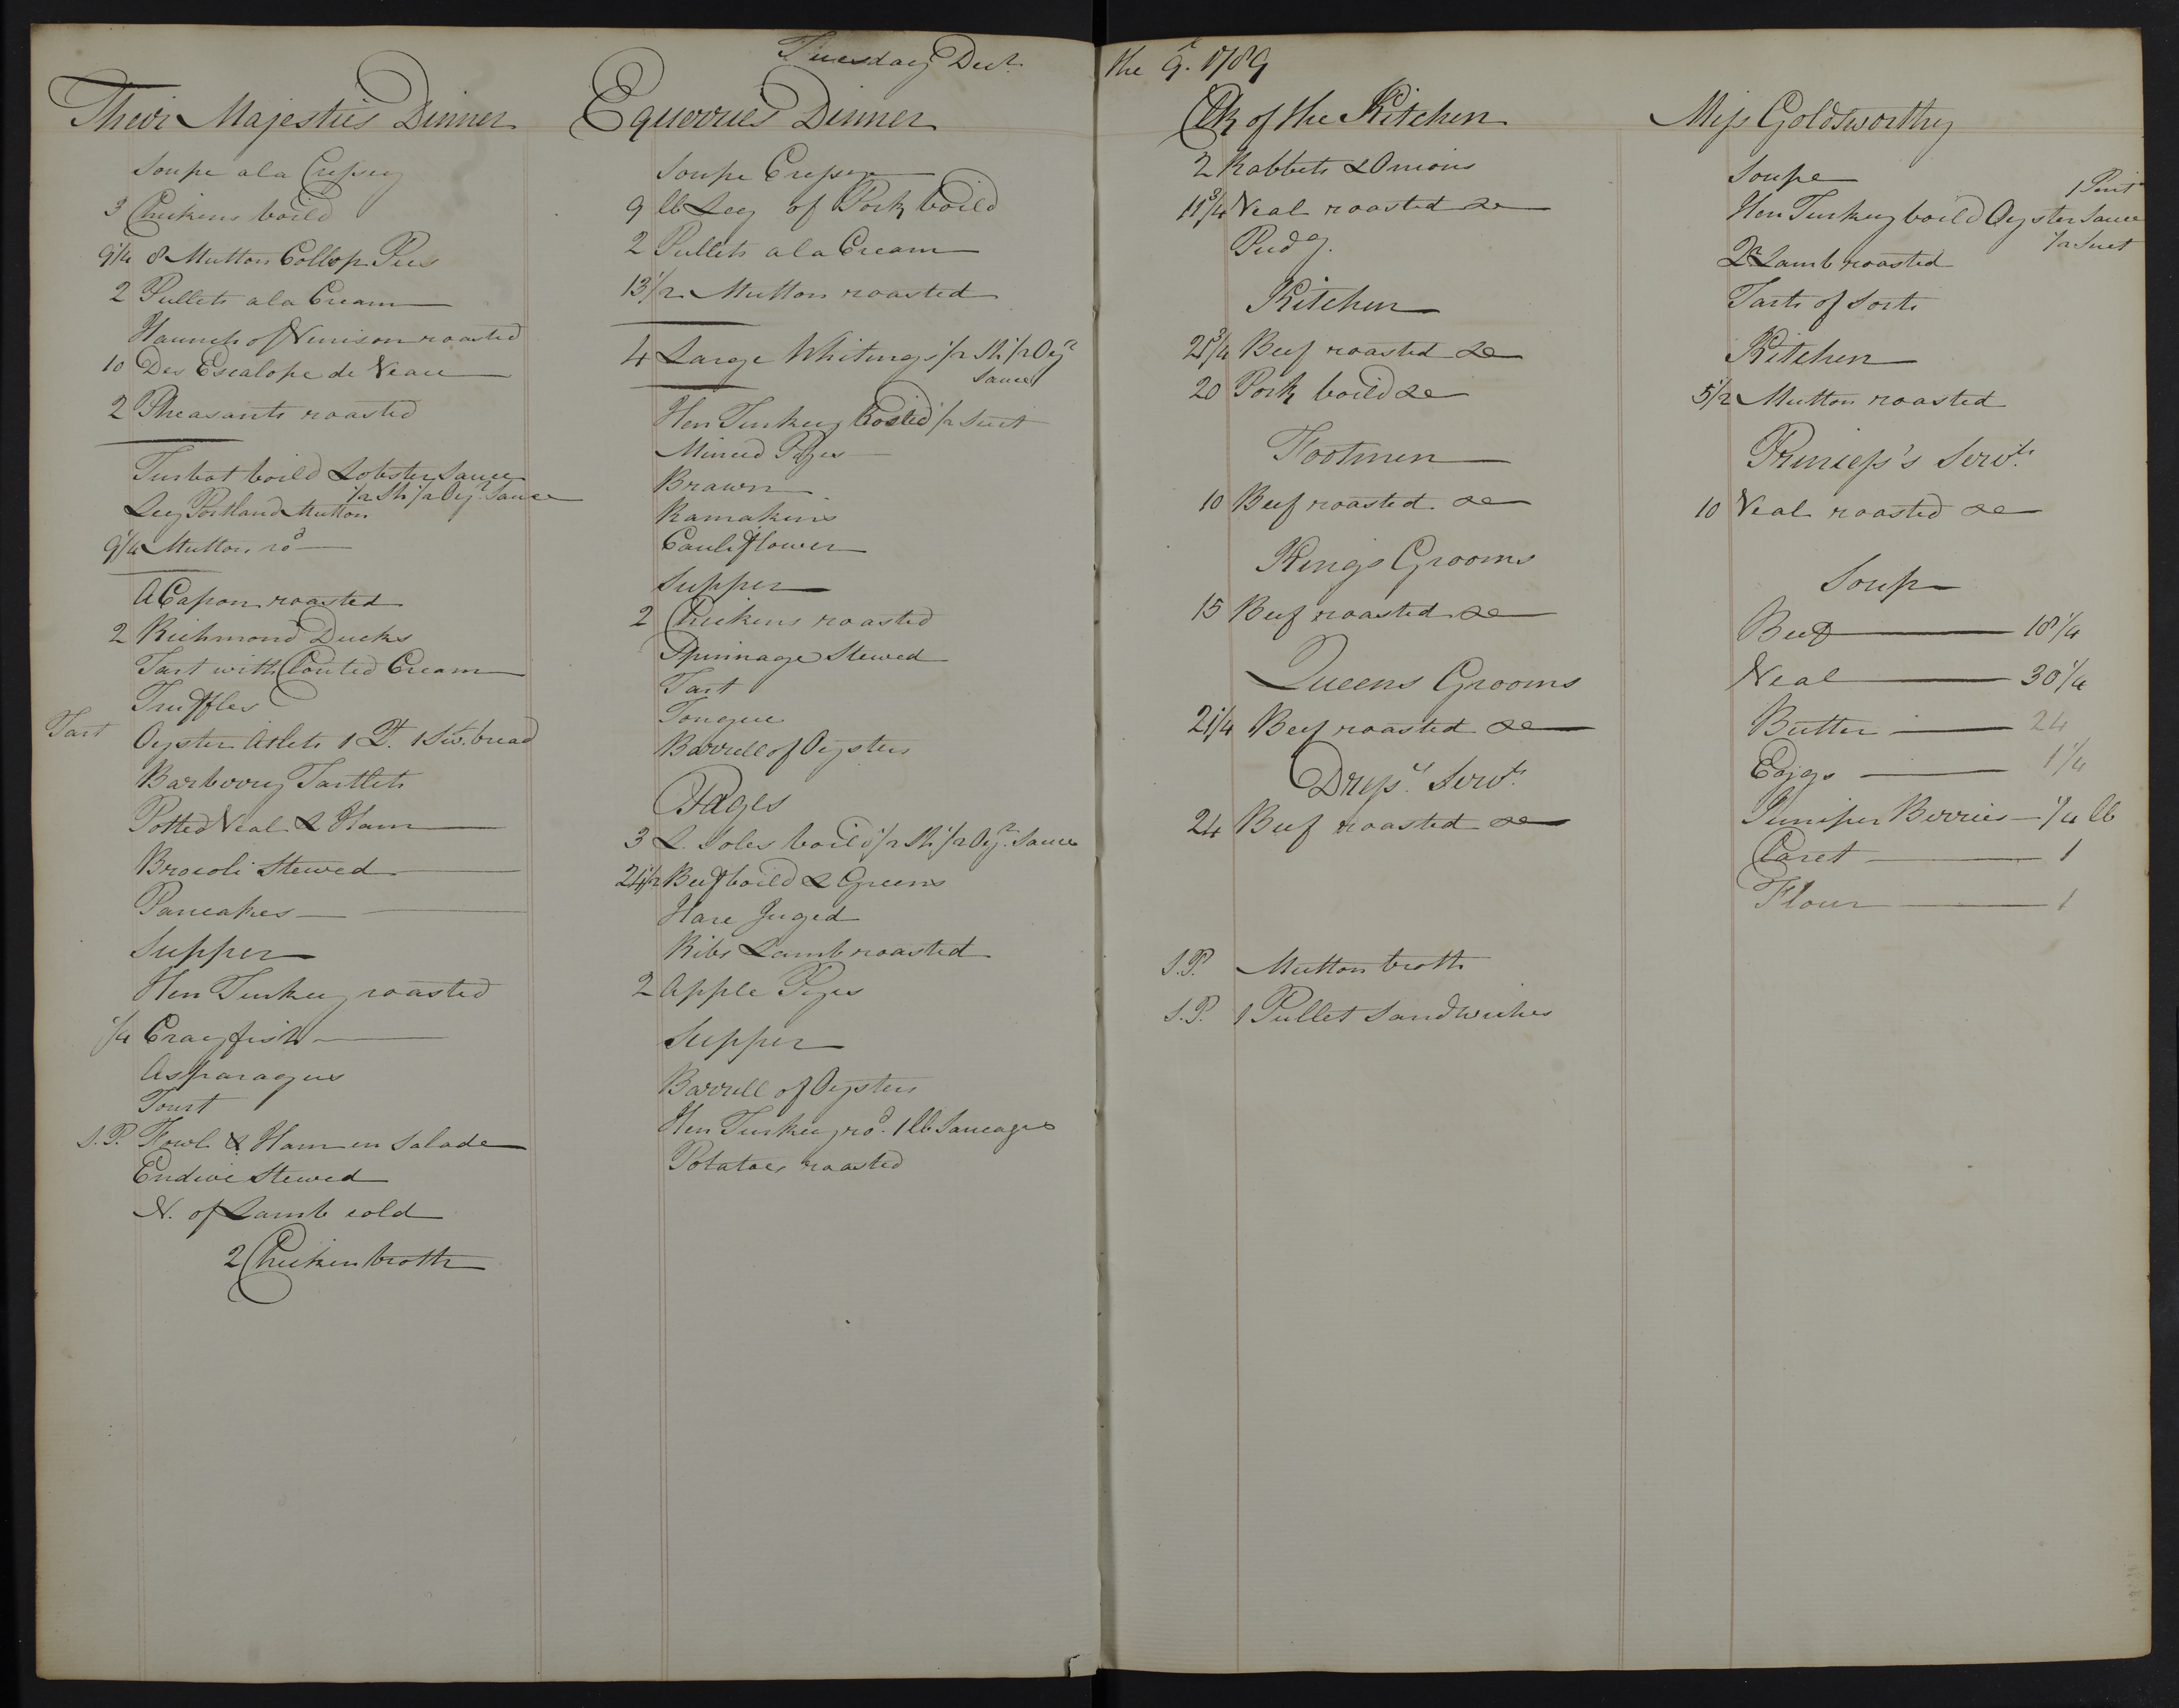 Tuesday Decr. the 9. 1789
Their Majesties Dinner
Soupe a la Crepsey
3 Chickens boild
9 1/4 8 Mutton Collop Pies
2 Pullets a la Cream
Haunch of Venison roasted
10 Des Escalope de Veau
2 Pheasants roasted
Turbot boild Lobster Sauce
1/2 Sh 1/2 Oyr. Sauce
Leg Portland Mutton
9 1/4 Mutton rod
A Capon roasted
2 Richmond Ducks
Tart with Clouted Cream
Truffles
Tart Oyster Atlets 1 Qt. 1 Sw. bread
Barberry Tartlets
Potted Veal & Ham
Brocoli Stewed
Pancakes
Supper
Hen Turkey roasted
1/4 Crayfish
Asparagus
Tourt
S.P. Fowl & Ham en Salade
Endive Stewed
N. of Lamb cold
2 Chicken broth
Equerries Dinner
Soupe Crepsey
9 lb Leg of Pork boild
2 Pullets a la Cream
13 1/2 Mutton roasted
4 Large Whitings 1/2 Sh 1/2 Oyr
Sauce
Hen Turkey 1/2 Suet
Minced Pyes
Brawn
Ramakins
Cauliflower
Supper
2 Chickens roasted
Spinnage Stewed
Tart
Tongue
Barrell of Oysters
Pages
3 L. Soles boild 1/2 Sh 1/2 Oyr. Sauce
24 1/2 Beef boild & Greens
Hare Juged
Ribs Lamb roasted
2 Apple Pyes
Supper
Barrell of Oysters
Hen Turkey rod. 1 lb Saucages
Potatoes roasted
Clk of the Kitchen
2 Rabbets & Onions
11 3/4 Veal roasted &c
Pudg.
Kitchen
21 3/4 Beef roasted &c
20 Pork boild &c
Footmen
10 Beef roasted &c
Kings Grooms
15 Beef roasted &c
Queens Grooms
21 1/4 Beef roasted &c
Dress.rs Servts.
24 Beef roasted &c
S.P. Mutton broth
S.P. 1 Pullet Sandwiches
Miss Goldsworthy
Soupe
1 Pint
Hen Turkey boild Oyster Sauce
1/2 Suet
Qr. Lamb roasted
Tarts of Sorts
Kitchen
5 1/2 Mutton roasted
Princess's Servts.
10 Veal roasted &c
Soup
Beef 18 1/4
Veal 30 1/4
Butter 24
Eggs 1 1/4
Juniper Berries 1/4 lb
Claret 1
Flour 1